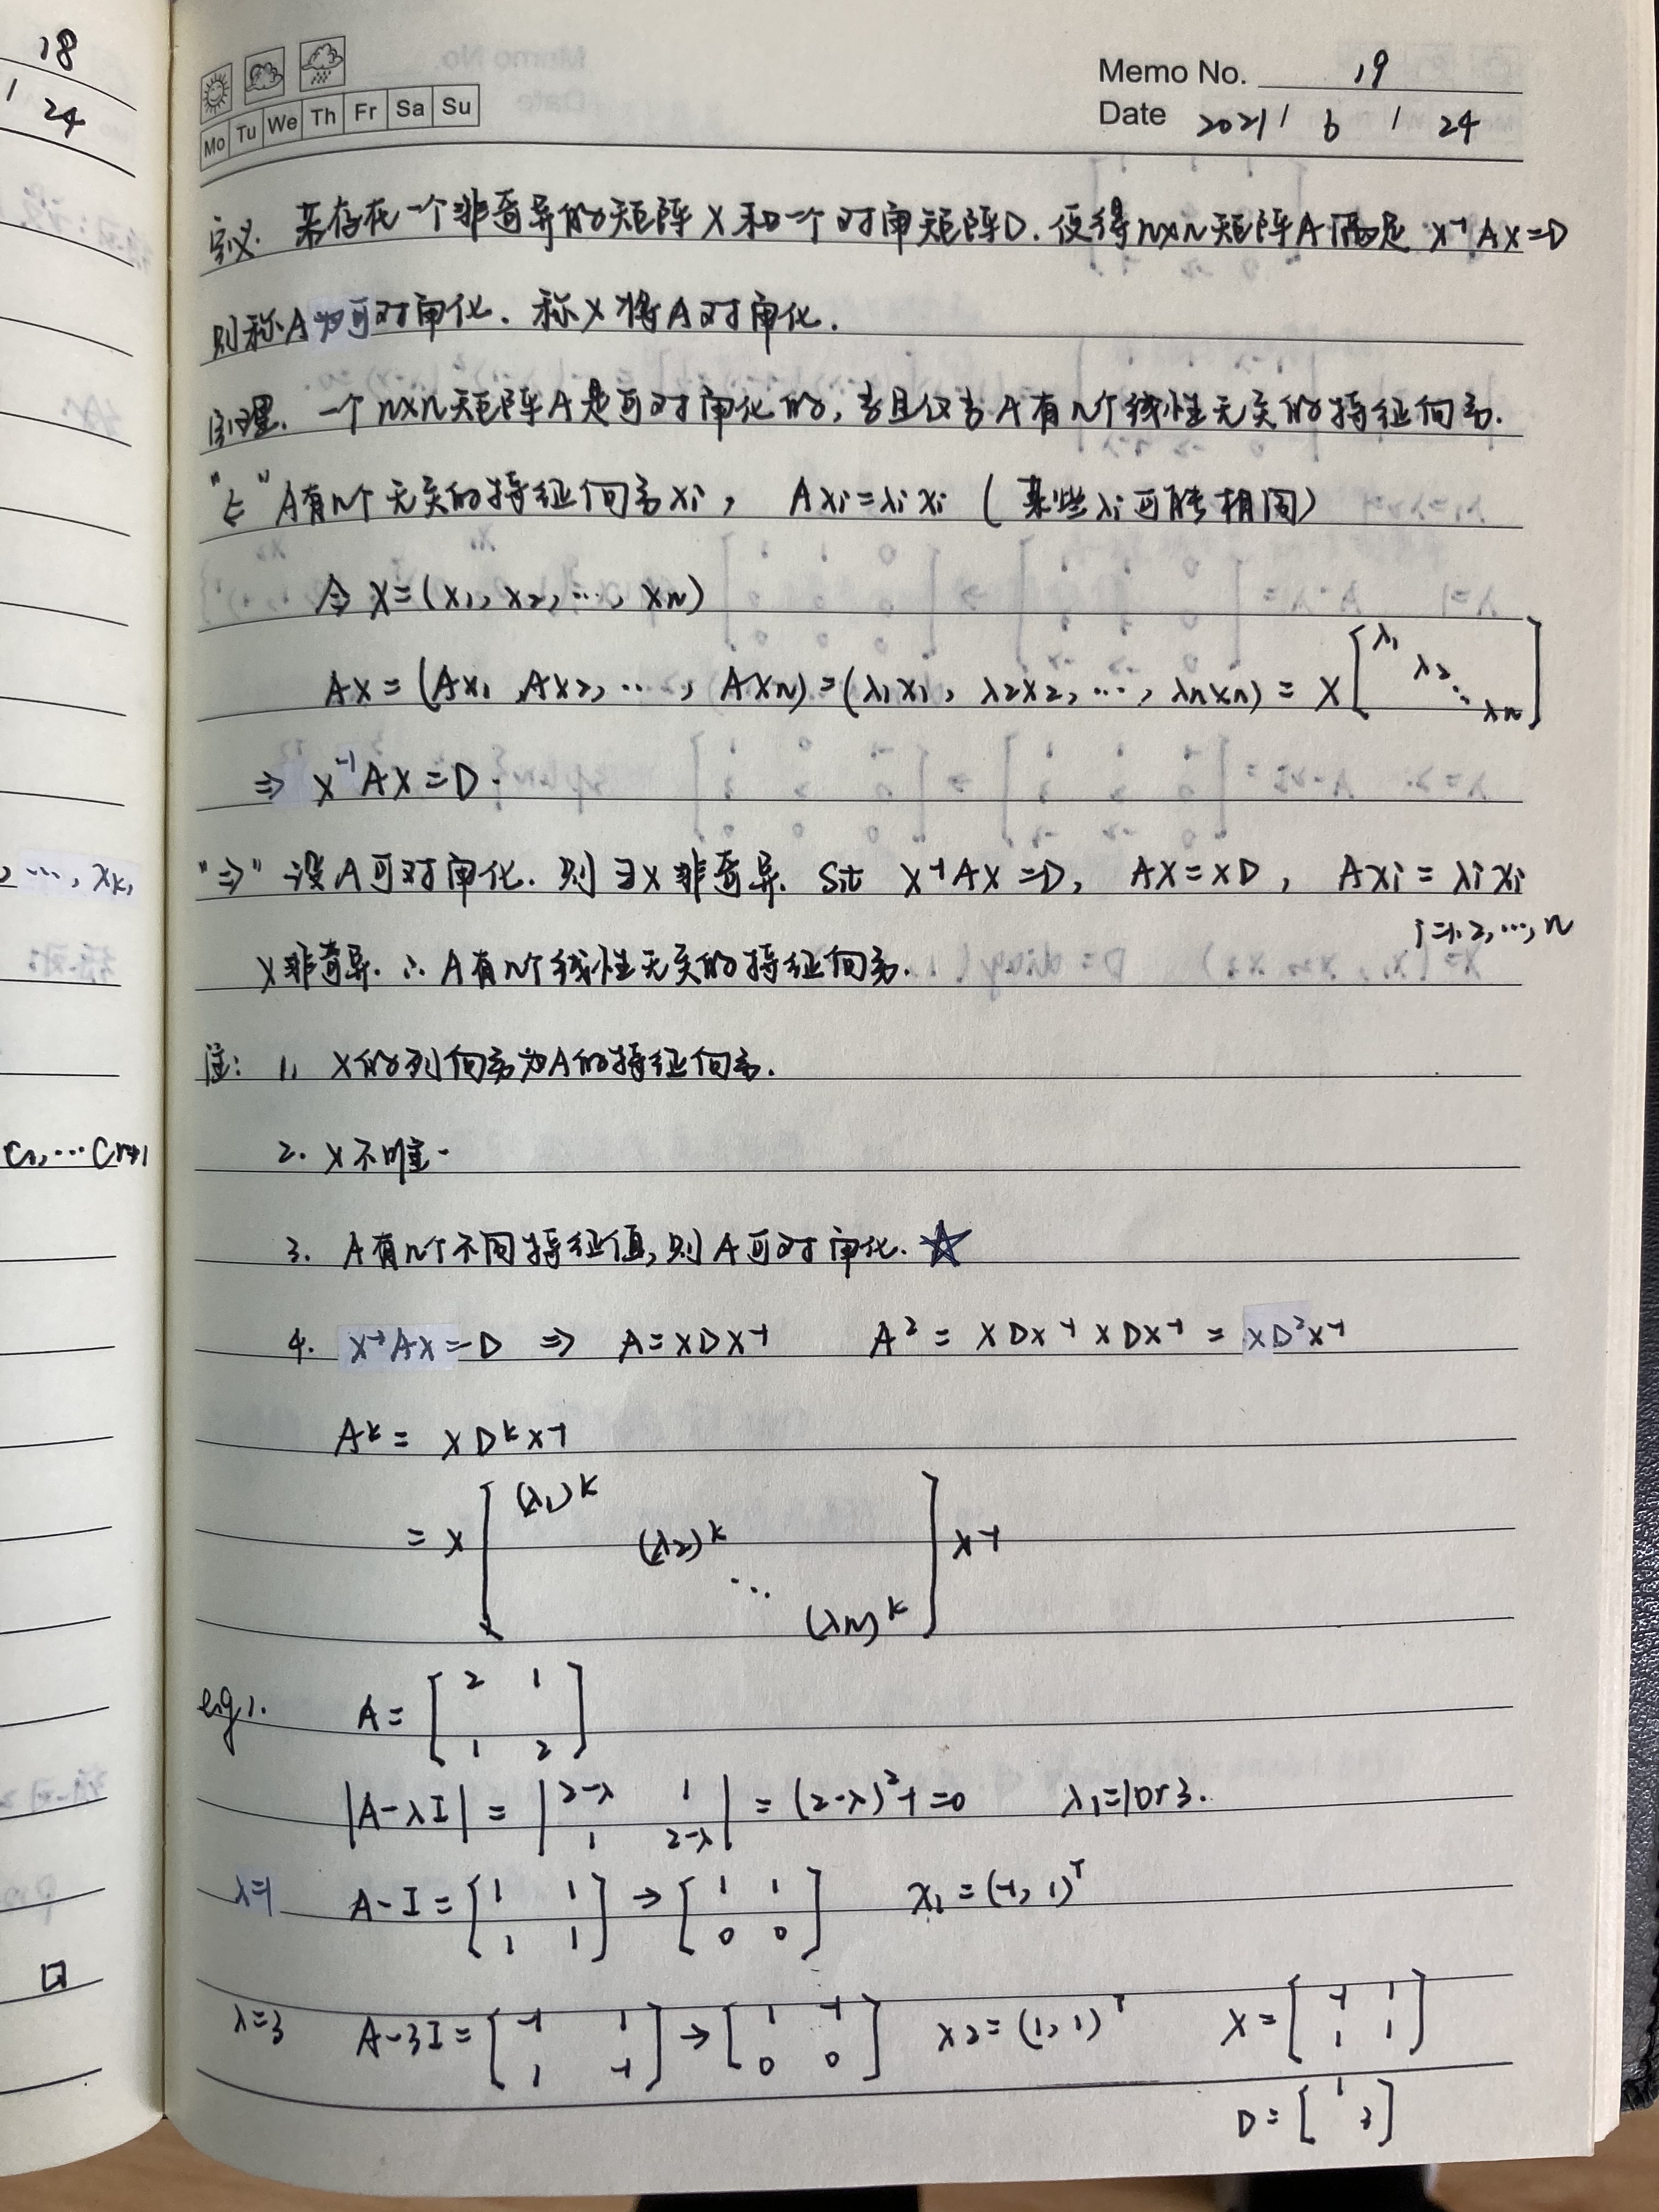 18
1 24
2 ⋯, xk,
C1, ⋯ Cr+1
□
Mo Tu We Th Fr Sa Su
Memo No. 19
Date 2021 / 6 / 24
定义. 若存在一个非奇异的矩阵X和一个对角矩阵D. 使得n×n矩阵A满足 X⁻¹AX=D
则称A为可对角化. 称X将A对角化.
定理. 一个n×n矩阵A是可对角化的, 当且仅当A有n个线性无关的特征向量.
"⇐" A有n个无关的特征向量xi, Axi=λixi (某些λi可能相同)
令X=(x1, x2, ⋯, xn)
AX=(Ax1, Ax2, ⋯, Axn)=(λ1x1, λ2x2, ⋯, λnxn)= X[λ1 λ2 ⋱ λn]
⇒ X⁻¹AX=D.
"⇒" 设A可对角化. 则∃X非奇异. s.t. X⁻¹AX=D, AX=XD, Axi=λixi
i=1,2,⋯,n
X非奇异. ∴ A有n个线性无关的特征向量.
注: 1. X的列向量为A的特征向量.
2. X不唯一.
3. A有n个不同特征值, 则A可对角化. ☆
4. X⁻¹AX=D ⇒ A=XDX⁻¹ A²=XDX⁻¹XDX⁻¹=XD²X⁻¹
Aᵏ=XDᵏX⁻¹
=X[(λ1)ᵏ (λ2)ᵏ ⋱ (λn)ᵏ]X⁻¹
eg1. A=[2 1; 1 2]
|A-λI|=|2-λ 1; 1 2-λ|=(2-λ)²-1=0 λ1=1 or 3.
λ=1 A-I=[1 1; 1 1]→[1 1; 0 0] x1=(-1, 1)ᵀ
λ=3 A-3I=[-1 1; 1 -1]→[1 -1; 0 0] x2=(1, 1)ᵀ X=[-1 1; 1 1]
D=[1 3]